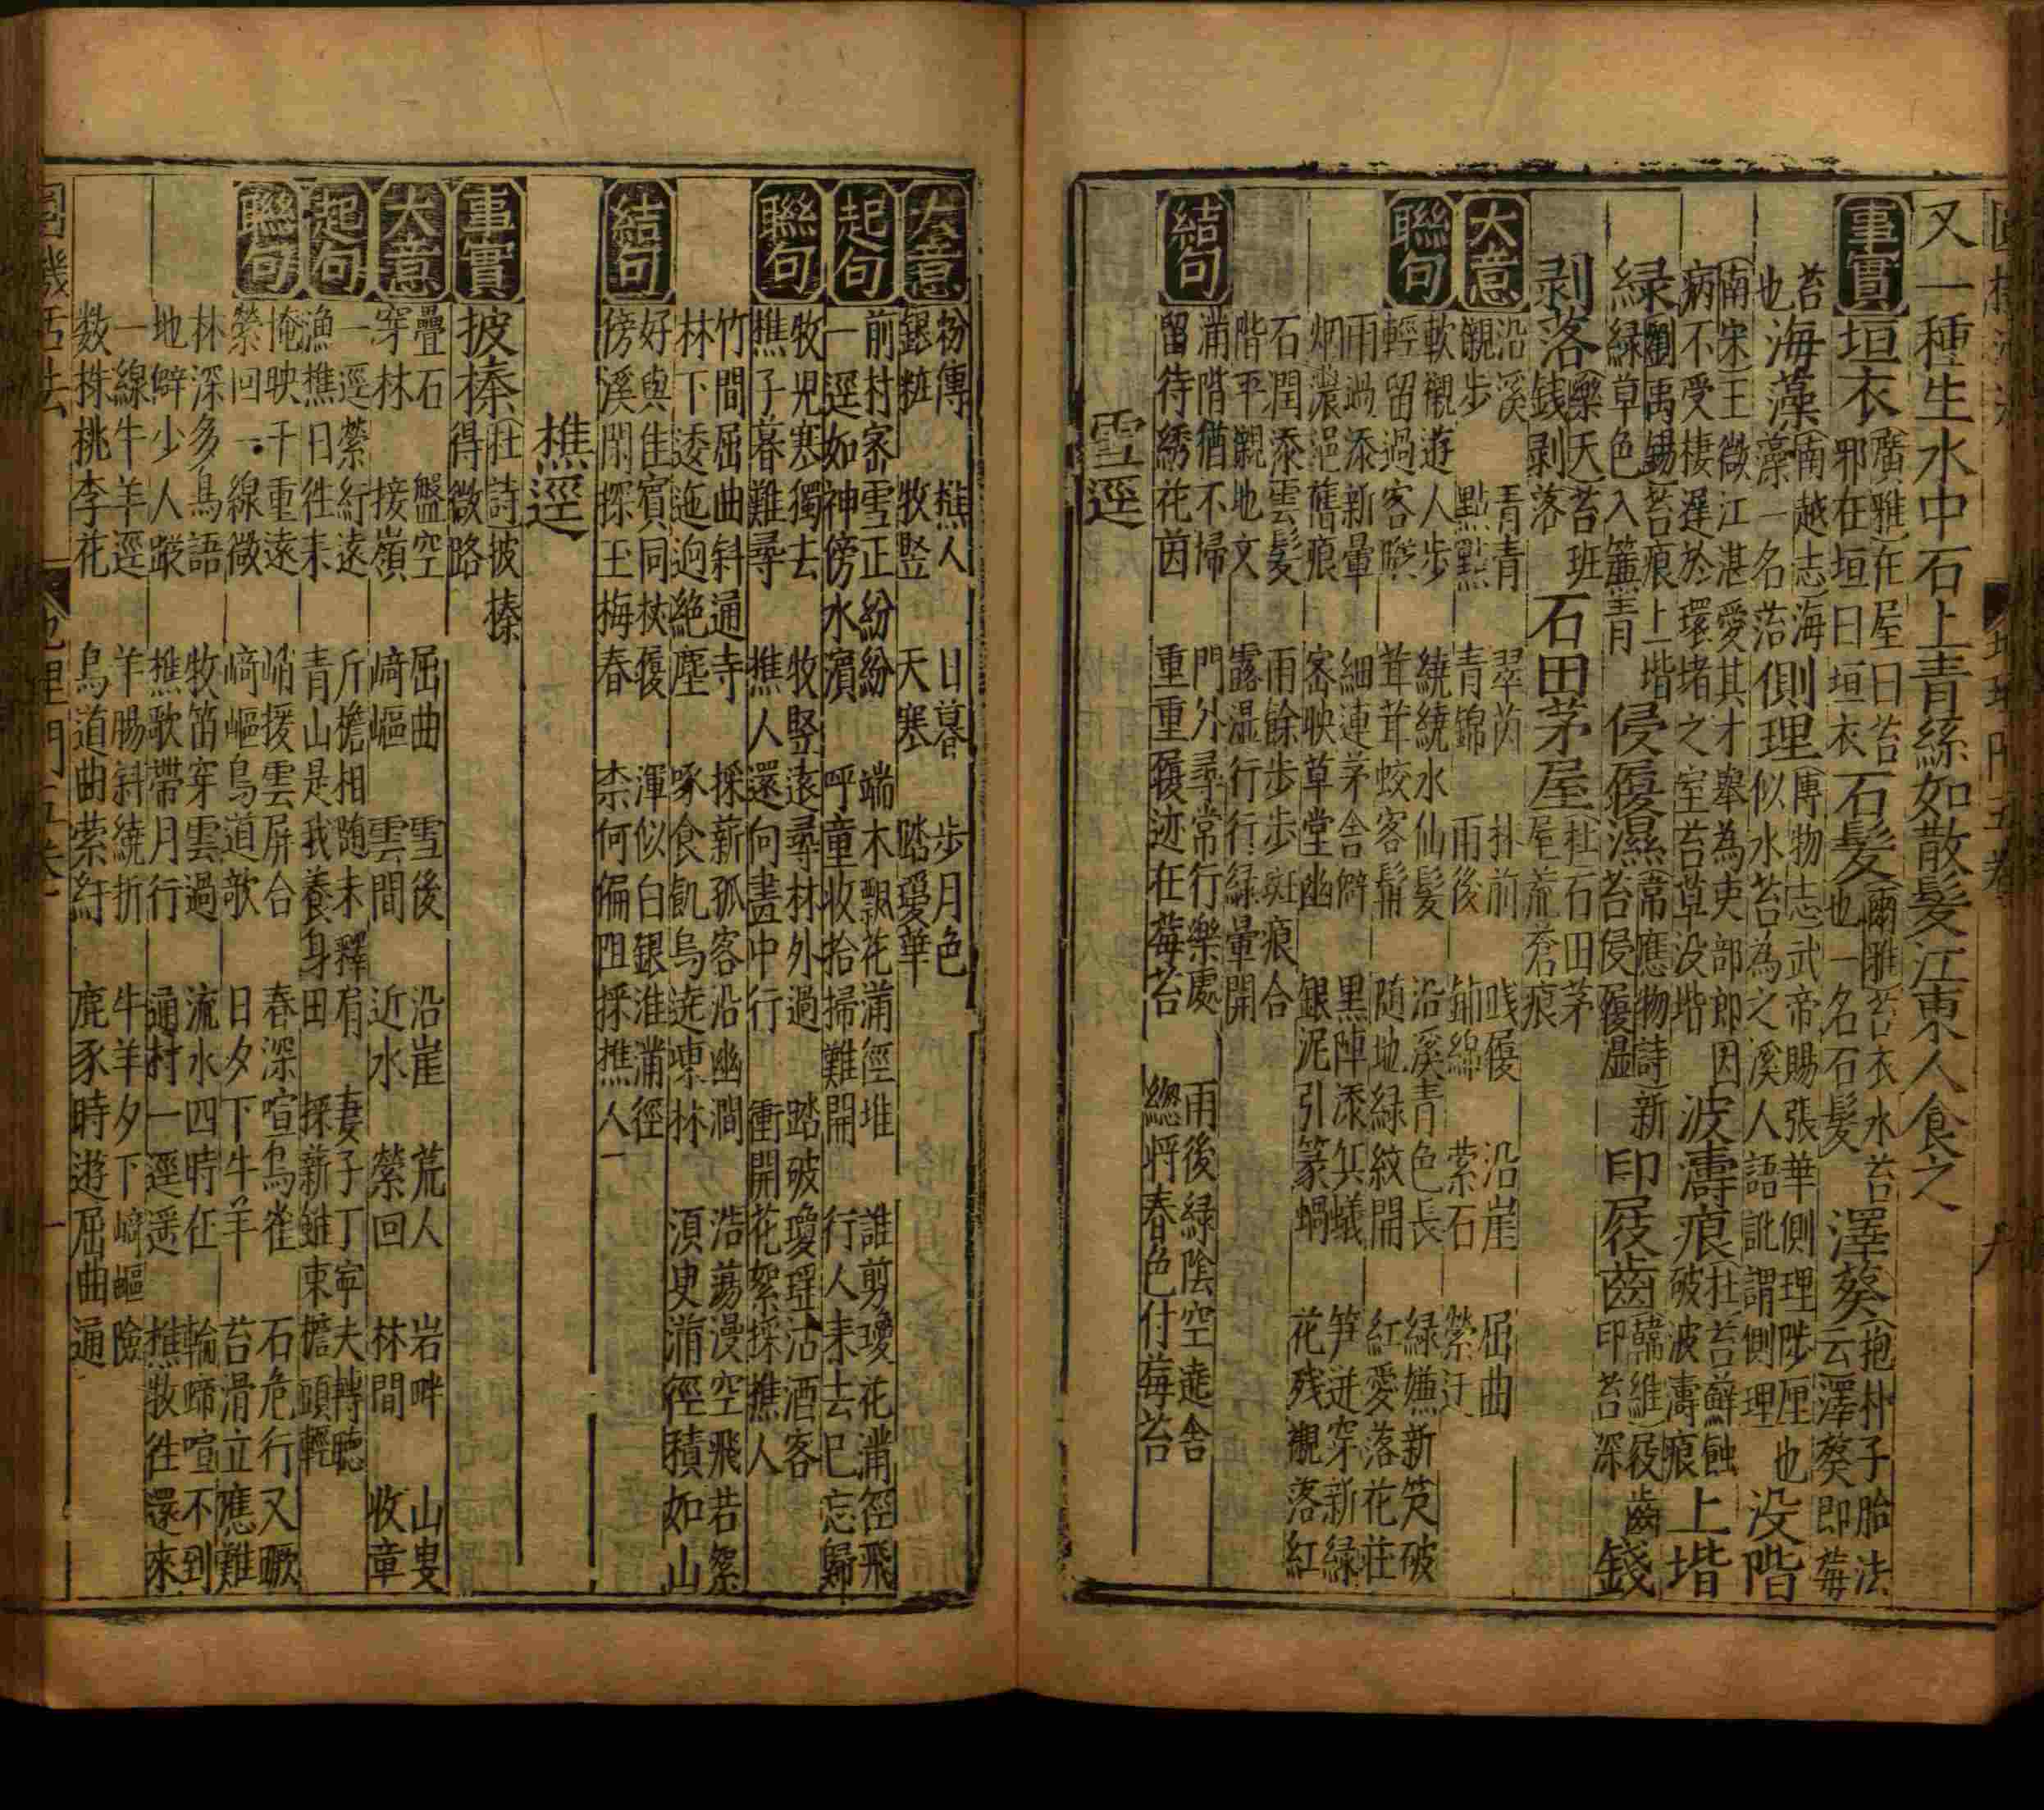 又一種生水中石上青絲如散髮江東人食之
事實 垣衣 廣雅在屋曰苔 邪在垣曰垣衣 石髮 爾雅苔衣水苔 也一名石髮 澤葵 抱朴子胎法 云澤葵即莓
苔 也 海藻 南越志海 藻一名落 側理 博物志武帝賜張華側理陟厘也 似水苔為之溪人語訛謂側理 没階
南宋王微江湛愛其才舉為吏部郎因 病不受棲遲於環堵之室苔草没堦 波濤痕 杜苔蘚蝕 破波濤痕 上堦
綠 劉禹錫苔痕上堦 綠草色入簾青 侵履濕 常應物詩新 苔侵履湿 印屐齒 韓維屐齒 印苔深 錢
剥落 樂天苔班 錢剥落 石田茅屋 杜石田茅 屋荒蒼痕
大意 沿溪 青青 翠芮 林前 践履 沿崖 屈曲
襯步 點點 青錦 雨後 鋪綿 縈石 縈迂
聯句 軟襯遊人步 繞繞水仙髮 沿溪青色長 綠嫌新筊破
輕留過客 茸茸蛟客髯 随地緑紋開 紅愛落花莊
雨過添新暈 細連茅舍僻 黒陣添兵蟻 笋迸穿新緑
烟濃浥舊痕 密映草堂幽 銀泥引篆蝸 花残襯落紅
石潤添雲髮 雨餘步步斑痕合
階平襯地文 露湿行行緑暈開
結句 滿階猶不掃 門外尋常行樂處 雨後緑陰空遶舍
留待綉花茵 重重履迹在莓苔 總將春色付莓苔
雪逕
大意 粉傳 樵人 日暮 步月色
銀粧 牧竪 天寒 踏瓊華
起句 前村密雪正紛紛 端木飄花滿徑堆 誰剪瓊花滿徑飛
一逕如神傍水濱 呼童收拾掃難開 行人来去巳忘歸
聯句 牧児寒獨去 牧竪遠尋林外過 踏破瓊瑶沽酒客
樵子暮難尋 樵人還向畵中行 衝開花絮採樵人
竹間屈曲斜通寺 採薪孤客沿幽澗 浩蕩漫空飛若絮
林下逶迤迥絶塵 啄食飢烏遶壞林 湏臾滿徑積如山
結句 好與佳賓同杖履 渾似白銀淮滿徑
傍溪閒探玉梅春 柰何偏阻採樵人
樵逕
事實 披榛 杜詩披榛 得微路
大意 疊石 盤空 屈曲 雪後 沿崖 荒人 岩畔 山叟
穿林 接嶺 﨑嶇 雲間 近水 縈回 林間 收童
起句 一逕縈紆遠 斤檐相随未釋肩 妻子丁寧夫轉聴
漁樵日徃来 青山是我養身田 採薪雖束檐頭輕
聯句 掩映千重遠 峭援雲屏合 春深喧鳥雀 石危行又蹶
縈回一線微 﨑嶇鳥道欹 日夕下牛羊 苔滑立應難
林深多鳥語 牧笛穿雲過 流水四時在 輪蹄喧不到
地僻少人蹤 樵歌帶月行 通村一逕遥 樵牧往還來
一線牛羊逕 羊腸斜繞折 牛羊夕下﨑嶇險
数株桃李花 鳥道曲縈紆 鹿豕時遊屈曲通